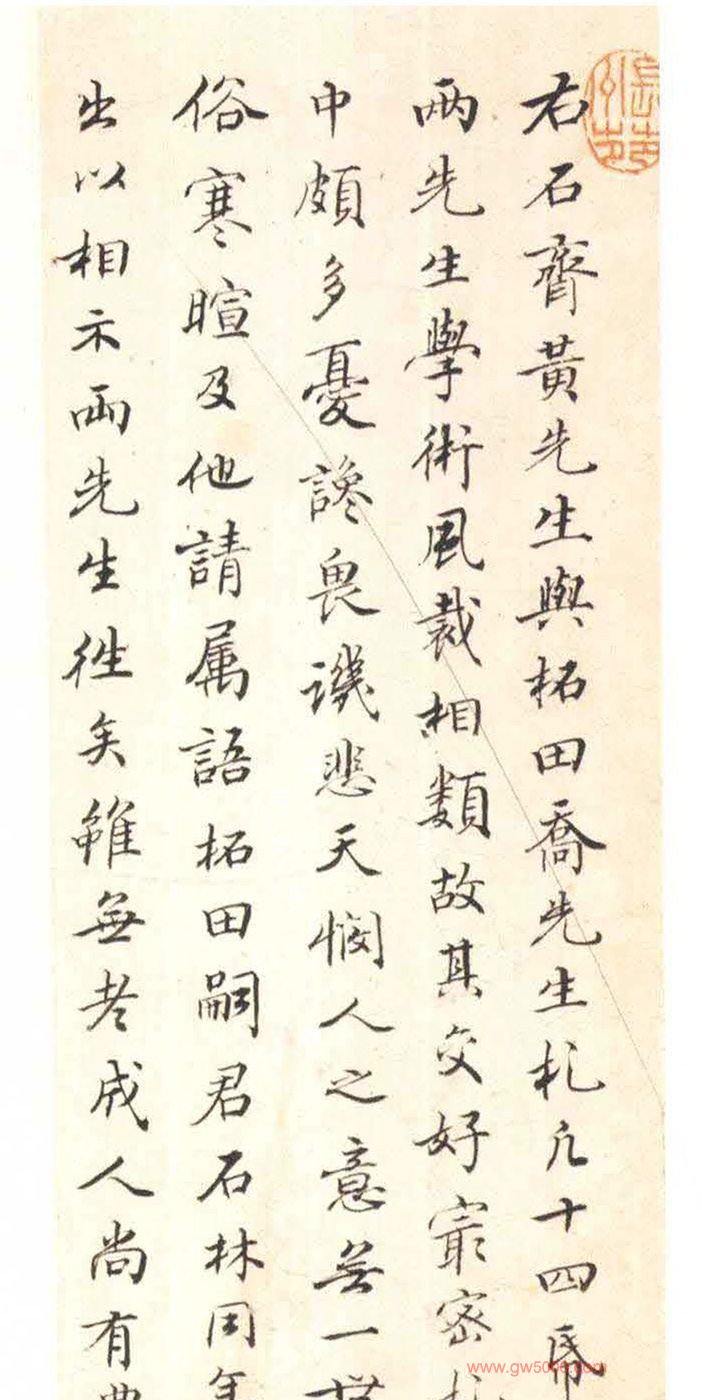 右石齊黃先生與柘田喬先生札凡十四帋
兩先生學術風裁相類故其交好冣密札
中頗多憂讒畏譏悲天憫人之意無一世
俗寒暄及他請属語柘田嗣君石林同年
出以相示兩先生徃矣雖無老成人尚有典
www.gw5000.com